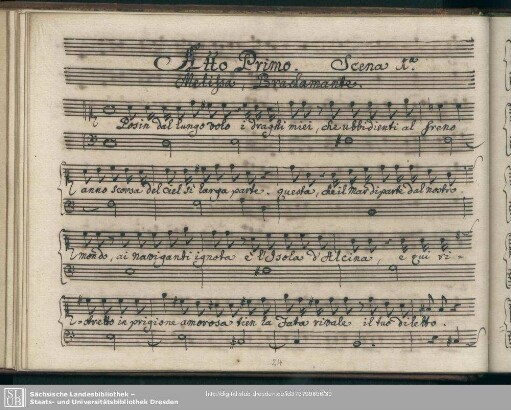 Atto Primo. Scena 1.ª
Melissa, Bradamante.
Posin dal lungo volo i draghi miei, che ubbidienti al freno
anno scorsa del Ciel sì larga parte. questa, che il Mar diparte dal nostro
mondo, ai naviganti ignota è l'Isola d'Alcina, e qui ri-
stretto in prigione amorosa tien la Fata rivale il tuo diletto.
24
SLUB
Sächsische Landesbibliothek –
Staats- und Universitätsbibliothek Dresden